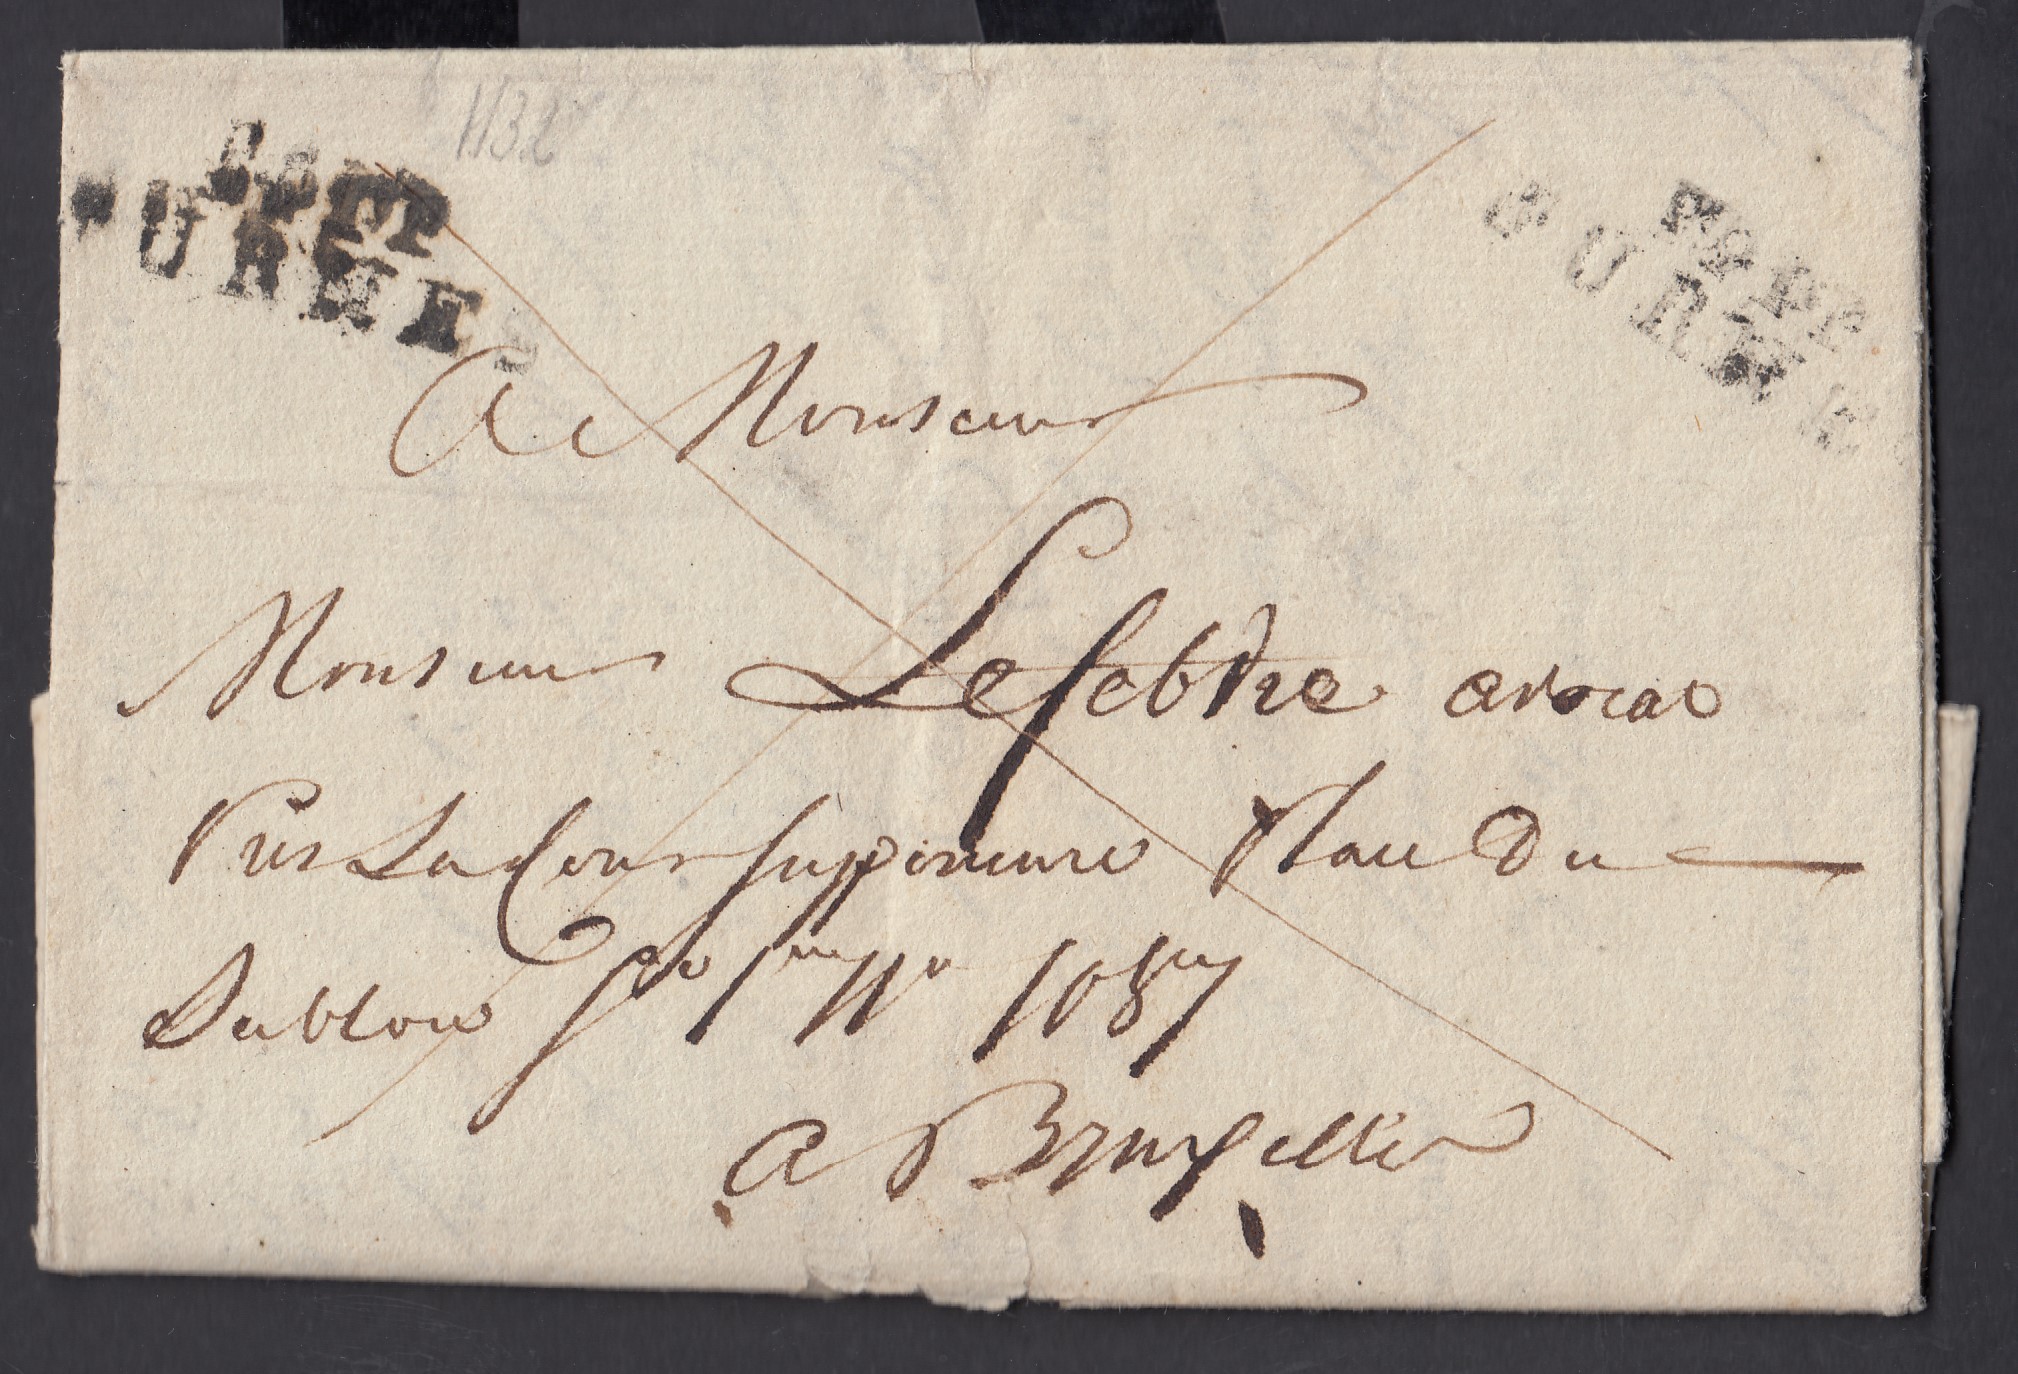 1132
FURNES
FURNE
A Monsieur
Monsieur Lefebvre avocat
Près La Cour Supperieure Place Du
Sablon Son 1re No 1087
a Bruxelles